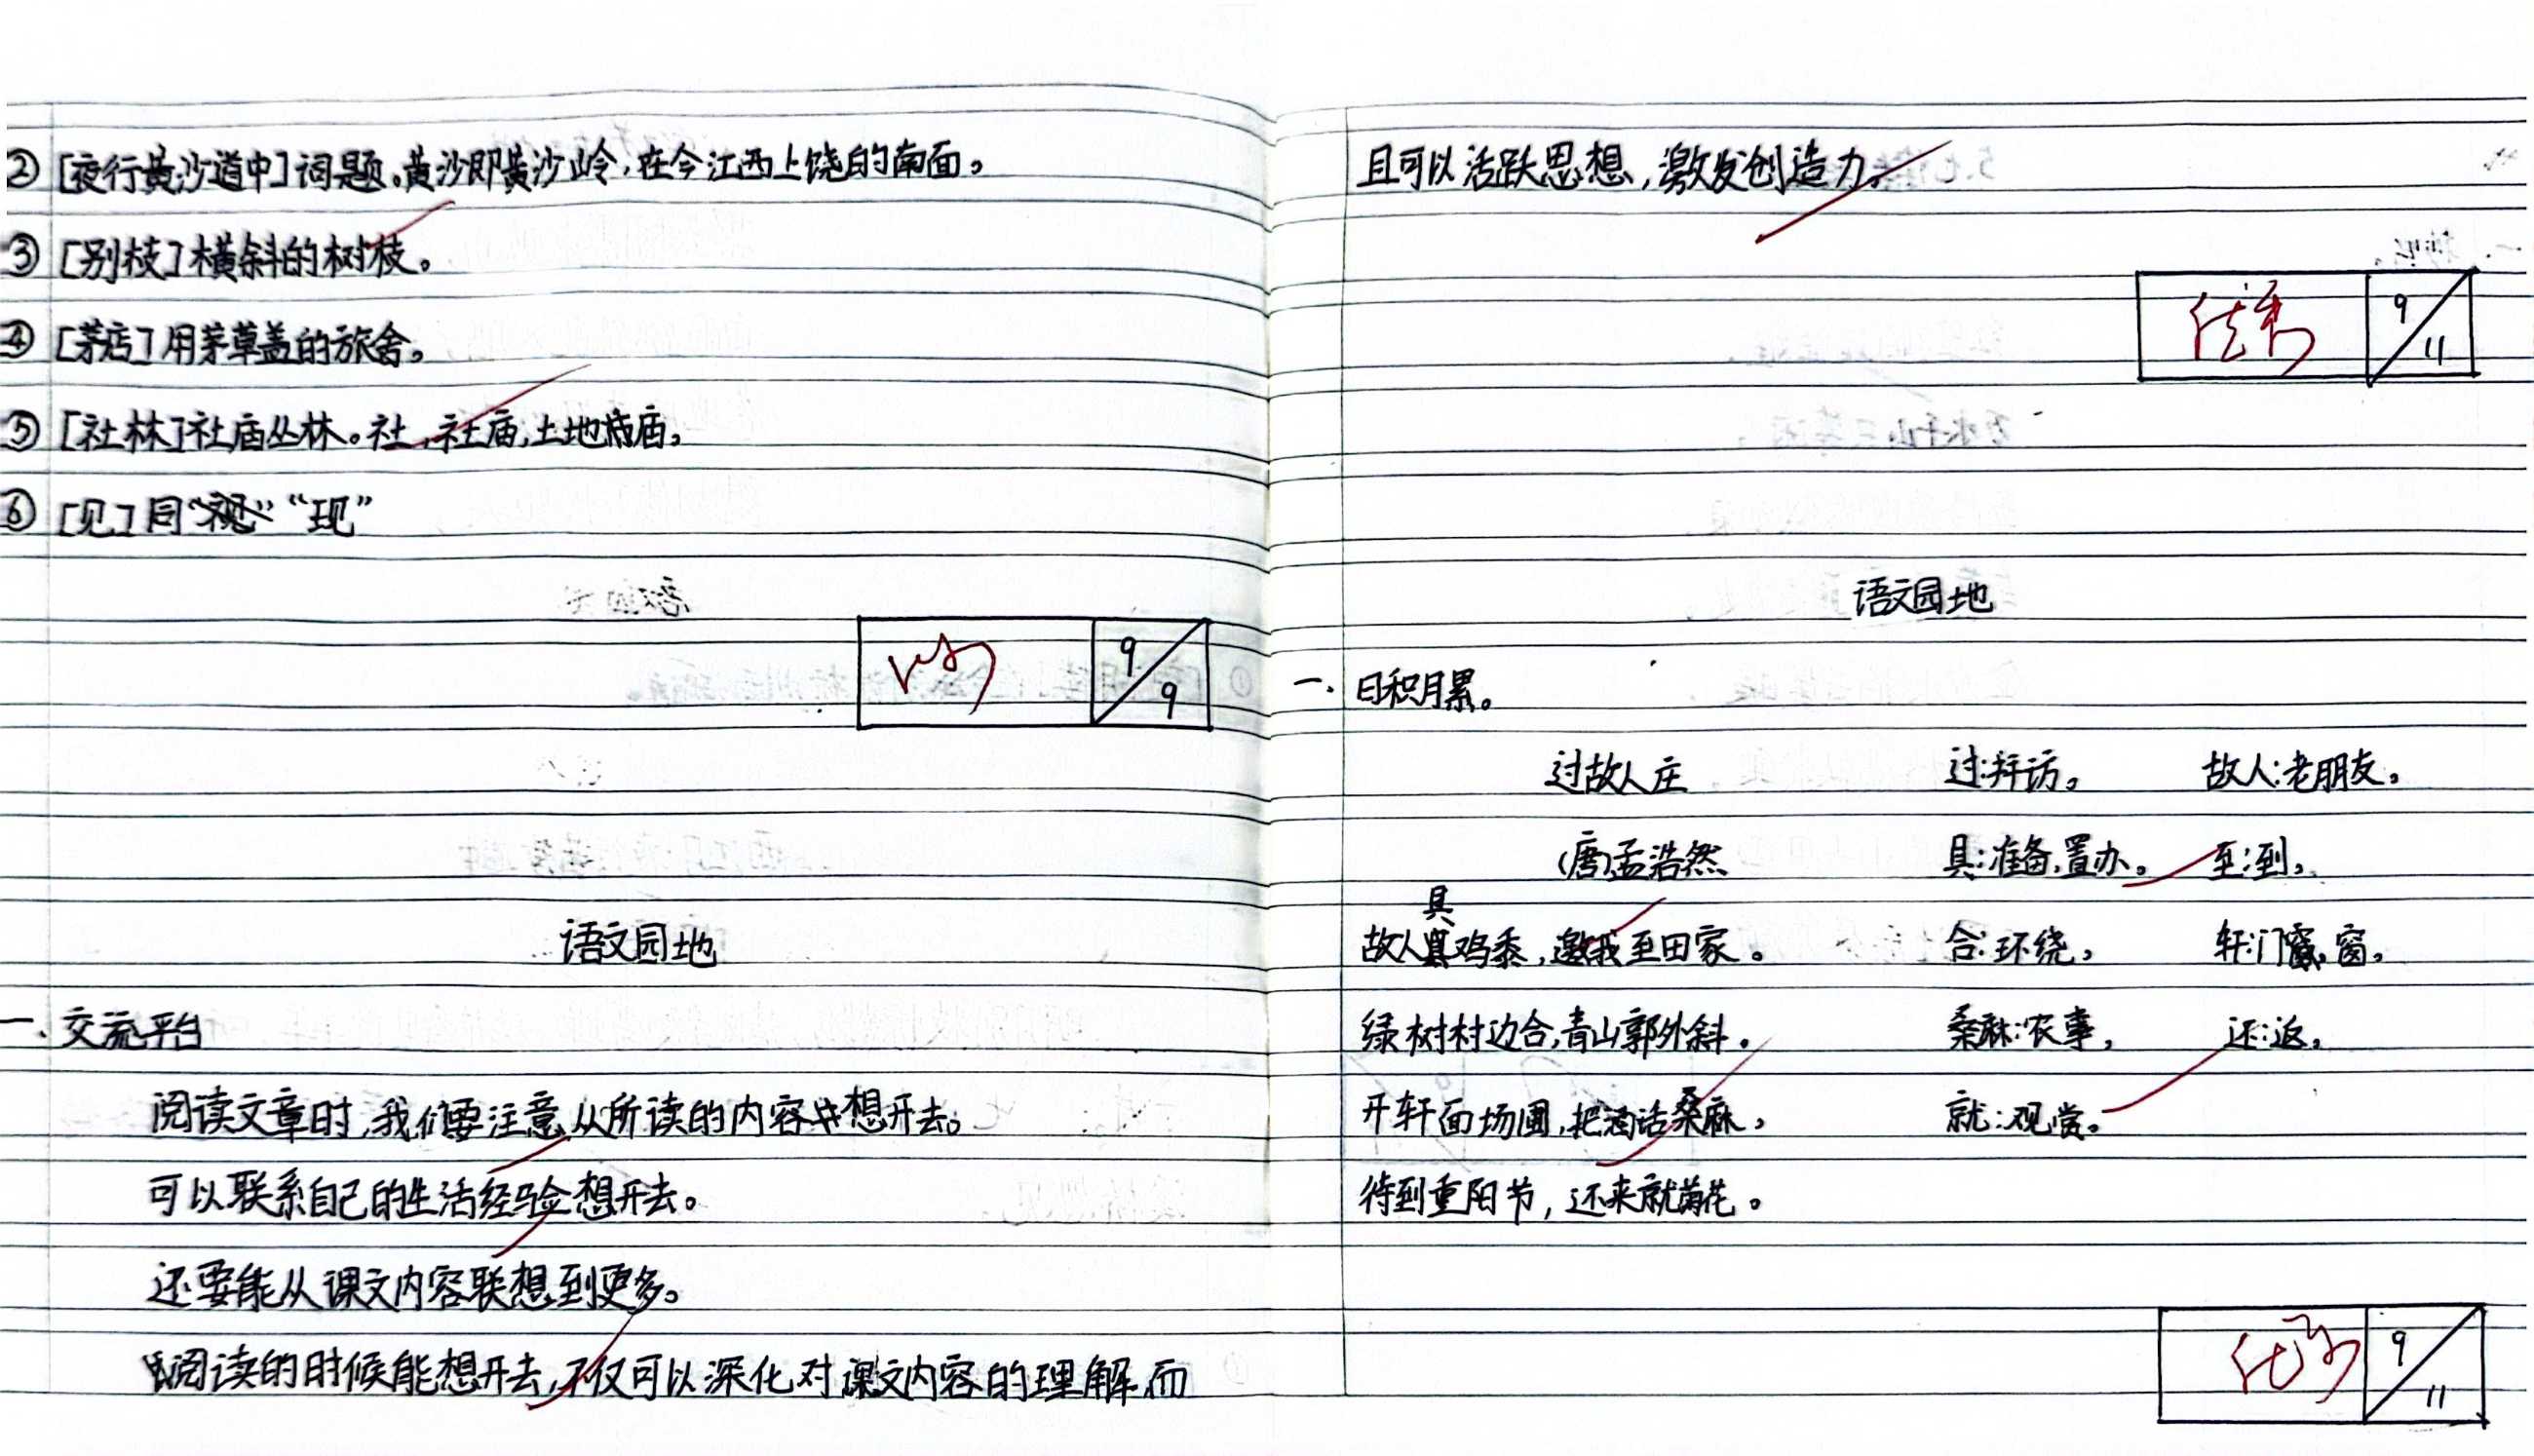 ② [夜行黄沙道中]词题。黄沙即黄沙岭,在今江西上饶的南面。
③ [别枝]横斜的树枝。
④ [茅店]用茅草盖的旅舍。
⑤ [社林]社庙丛林。社,社庙,土地庙。
⑥ [见]同“现”
9/9
语文园地
一、交流平台
阅读文章时,我们要注意从所读的内容中想开去。
可以联系自己的生活经验想开去。
还要能从课文内容联想到更多。
阅读的时候能想开去,不仅可以深化对课文内容的理解而
且可以活跃思想,激发创造力。
优秀 9/11
语文园地
一、日积月累。
过故人庄 过:拜访。 故人:老朋友。
(唐)孟浩然 具:准备,置办。 至:到。
故人具鸡黍,邀我至田家。 合:环绕。 轩:门窗。
绿树村边合,青山郭外斜。 桑麻:农事。 还:返。
开轩面场圃,把酒话桑麻。 就:观赏。
待到重阳节,还来就菊花。
优秀 9/11